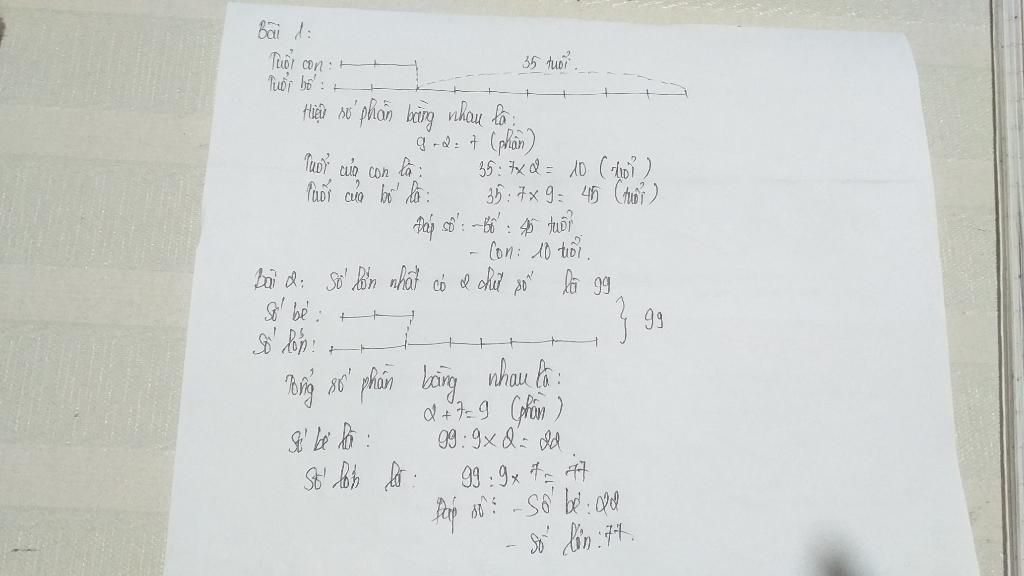 Bài 1:
Tuổi con: 35 tuổi.
Tuổi bố:
Hiệu số phần bằng nhau là:
9 - 2 = 7 (phần)
Tuổi của con là: 35 : 7 x 2 = 10 (tuổi)
Tuổi của bố là: 35 : 7 x 9 = 45 (tuổi)
Đáp số: - Bố: 45 tuổi
- Con: 10 tuổi.
Bài 2: Số lớn nhất có 2 chữ số là 99
Số bé:
Số lớn: } 99
Tổng số phần bằng nhau là:
2 + 7 = 9 (phần)
Số bé là: 99 : 9 x 2 = 22.
Số lớn là: 99 : 9 x 7 = 77
Đáp số: - Số bé: 22
- Số lớn: 77.